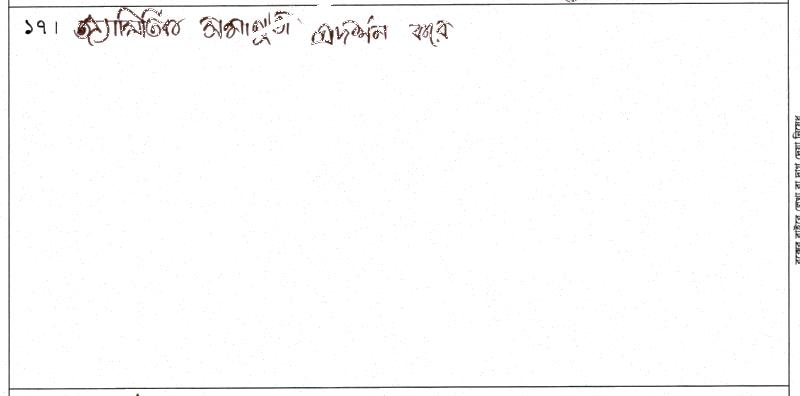 ১৭। জ্যামিতিক সমাণুতা প্রদর্শন করে
বক্সের বাইরে লেখা বা দাগ দেয়া নিষেধ